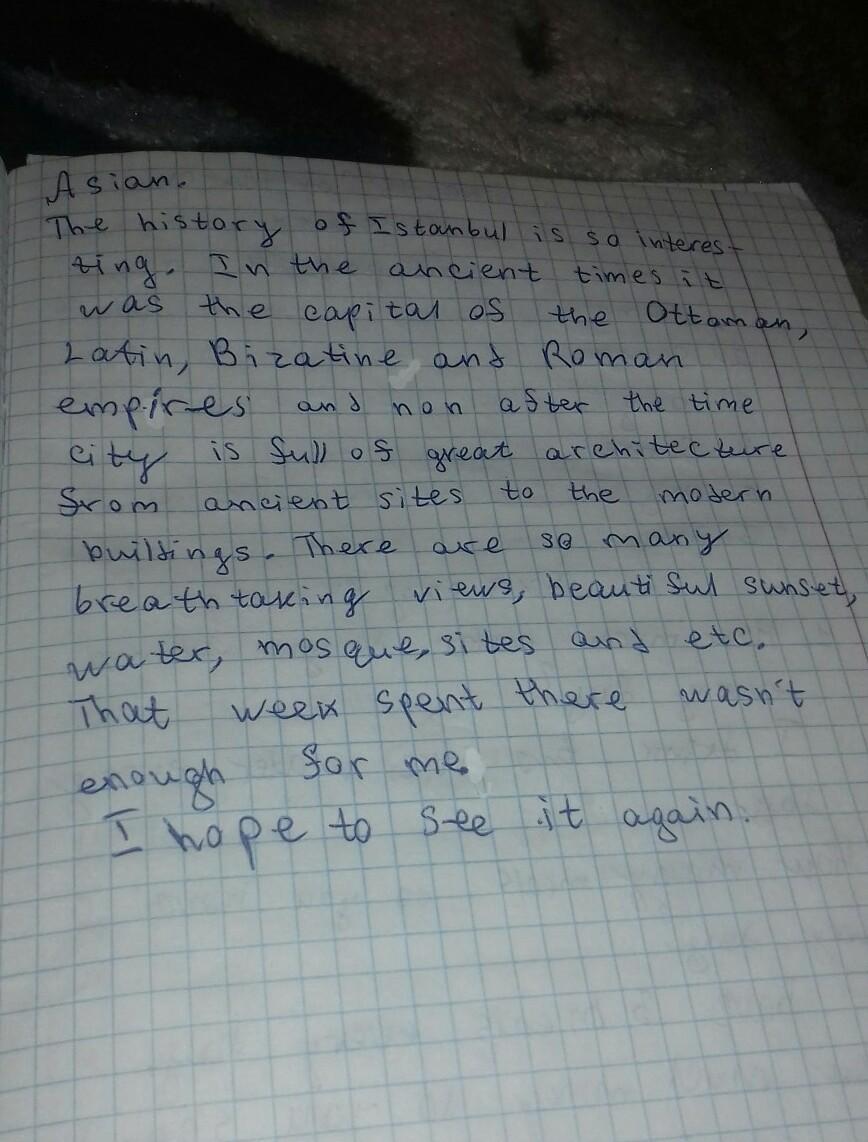 Asian.
The history of Istanbul is so interes-
ting. In the ancient times it
was the capital of the Ottoman,
Latin, Bizatine and Roman
empires and non after the time
city is full of great architecture
from ancient sites to the modern
buildings. There are so many
breathtaking views, beautiful sunset,
water, mosque, sites and etc.
That week spent there wasn't
enough for me.
I hope to see it again.